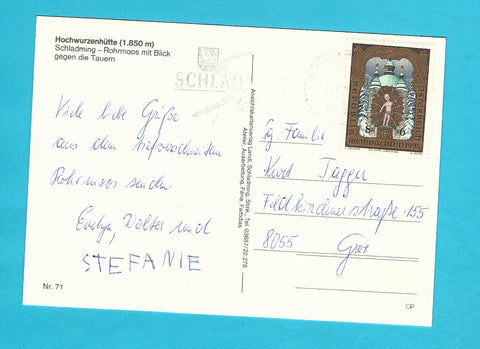 Hochwurzenhütte (1.850 m)
Schladming – Rohrmoos mit Blick
gegen die Tauern
SCHLAD
Viele liebe Grüße
aus dem tiefverschneiten
Rohrmoos senden
Evelyn, Walter und
STEFANIE
Nr. 71
Ansichtskartenverlag Landl, Schladming, Stmk., Tel. 03687/22 278
Atelier, Ausarbeitung, Filme, Farbdias
WEIHNACHTEN 1995
6
Fam. Familie
Kurt Tagger
Feldkirchnerstraße 155
8055 Graz